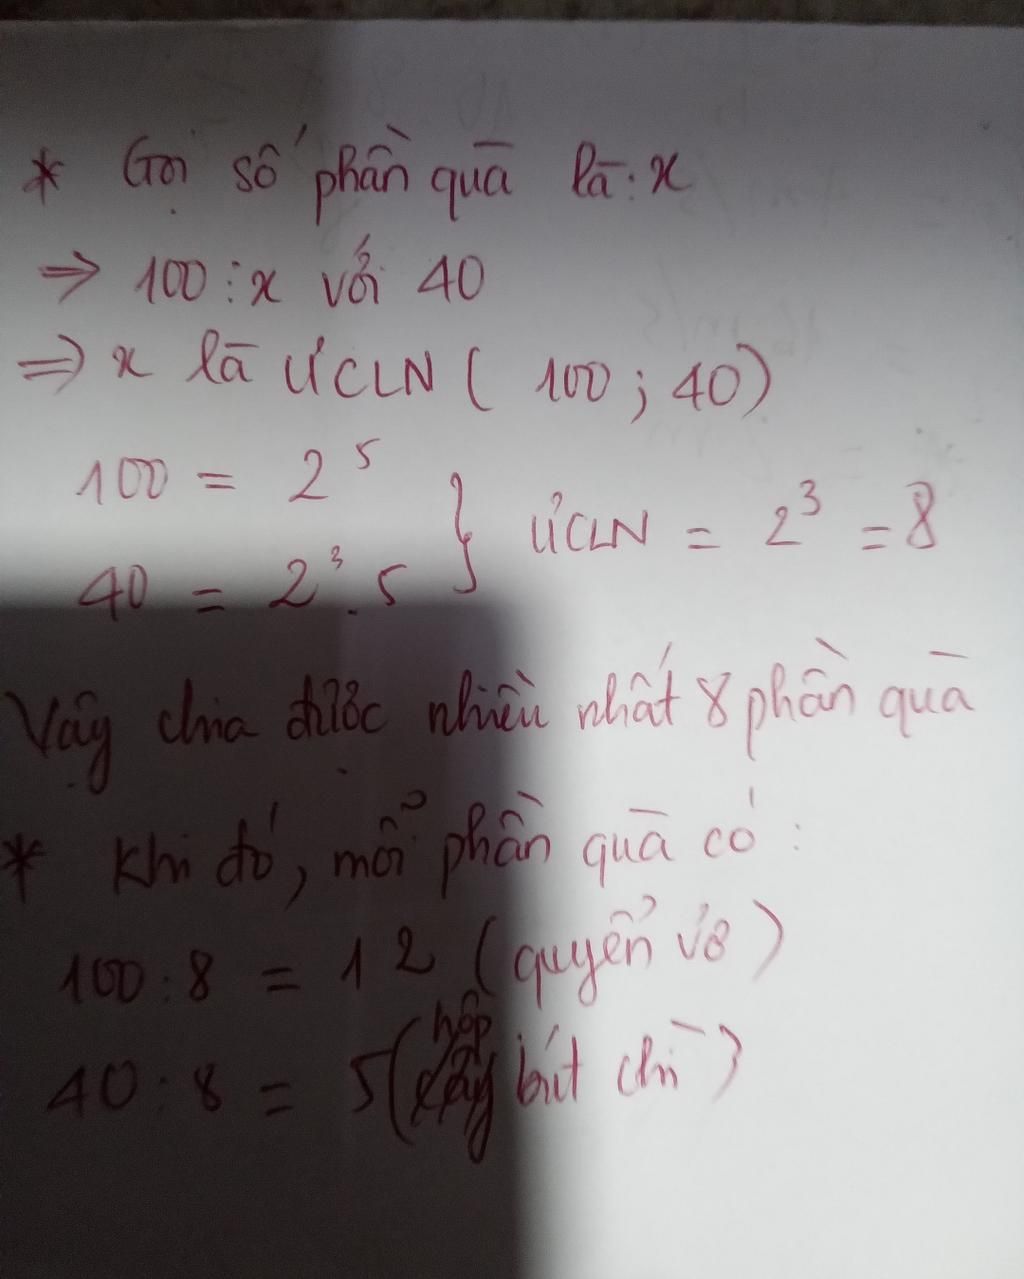 * Gọi số phần quà là: x
⇒ 100 ⋮ x với 40
⇒ x là ƯCLN ( 100 ; 40)
100 = 2⁵
40 = 2³ . 5 } ƯCLN = 2³ = 8
Vậy chia được nhiều nhất 8 phần quà
* Khi đó, mỗi phần quà có :
100 : 8 = 12 (quyển vở)
40 : 8 = 5 (hộp bút chì)